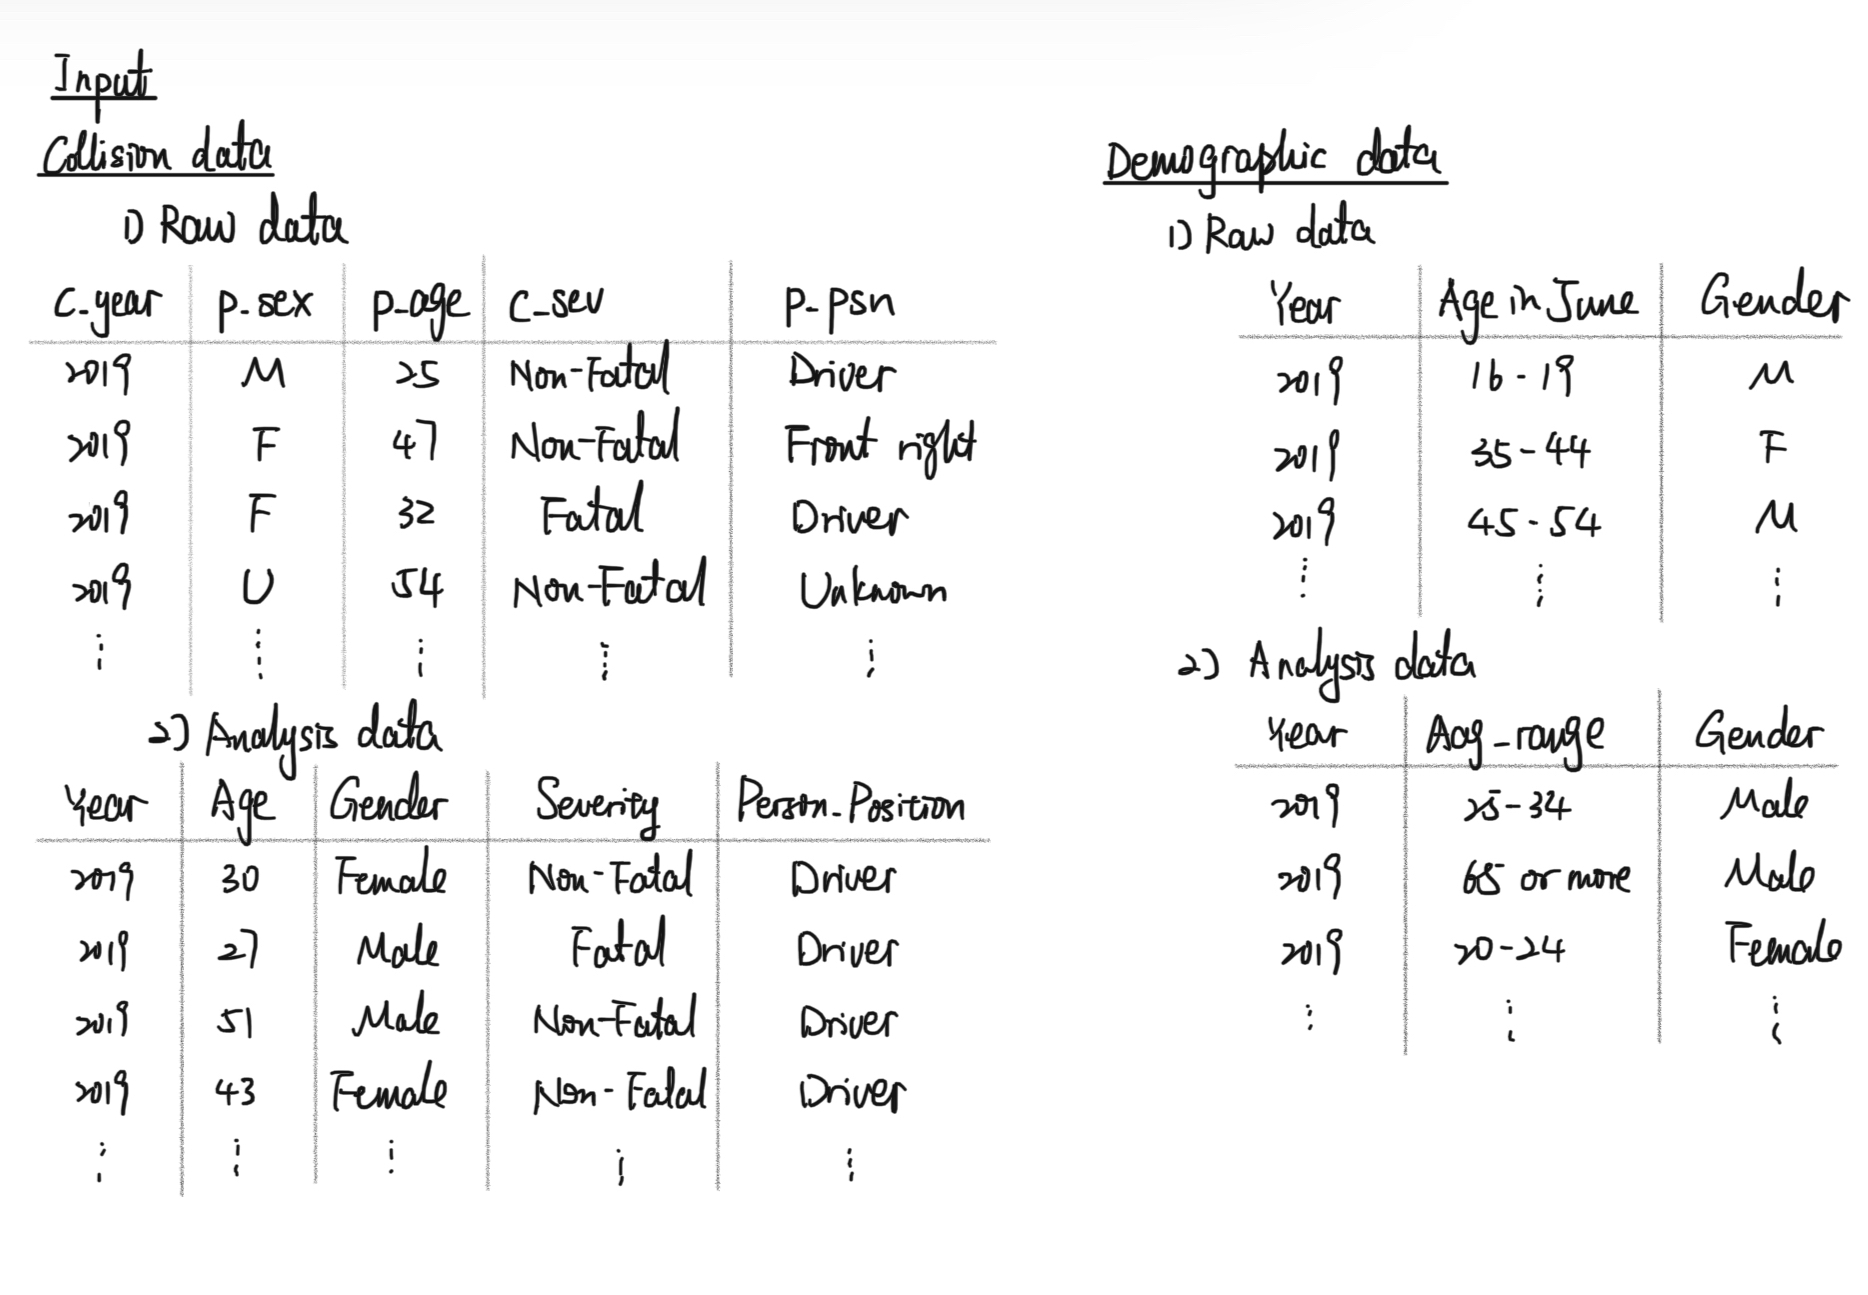 Input
Collision data
1) Raw data
C_year P_sex P_age C_sev P_psn
2019 M 25 Non-Fatal Driver
2019 F 47 Non-Fatal Front right
2019 F 32 Fatal Driver
2019 U 54 Non-Fatal Unknown
2) Analysis data
Year Age Gender Severity Person_Position
2019 30 Female Non-Fatal Driver
2019 27 Male Fatal Driver
2019 51 Male Non-Fatal Driver
2019 43 Female Non-Fatal Driver
Demographic data
1) Raw data
Year Age in June Gender
2019 16-19 M
2019 35-44 F
2019 45-54 M
2) Analysis data
Year Aag_range Gender
2019 25-34 Male
2019 65 or more Male
2019 20-24 Female